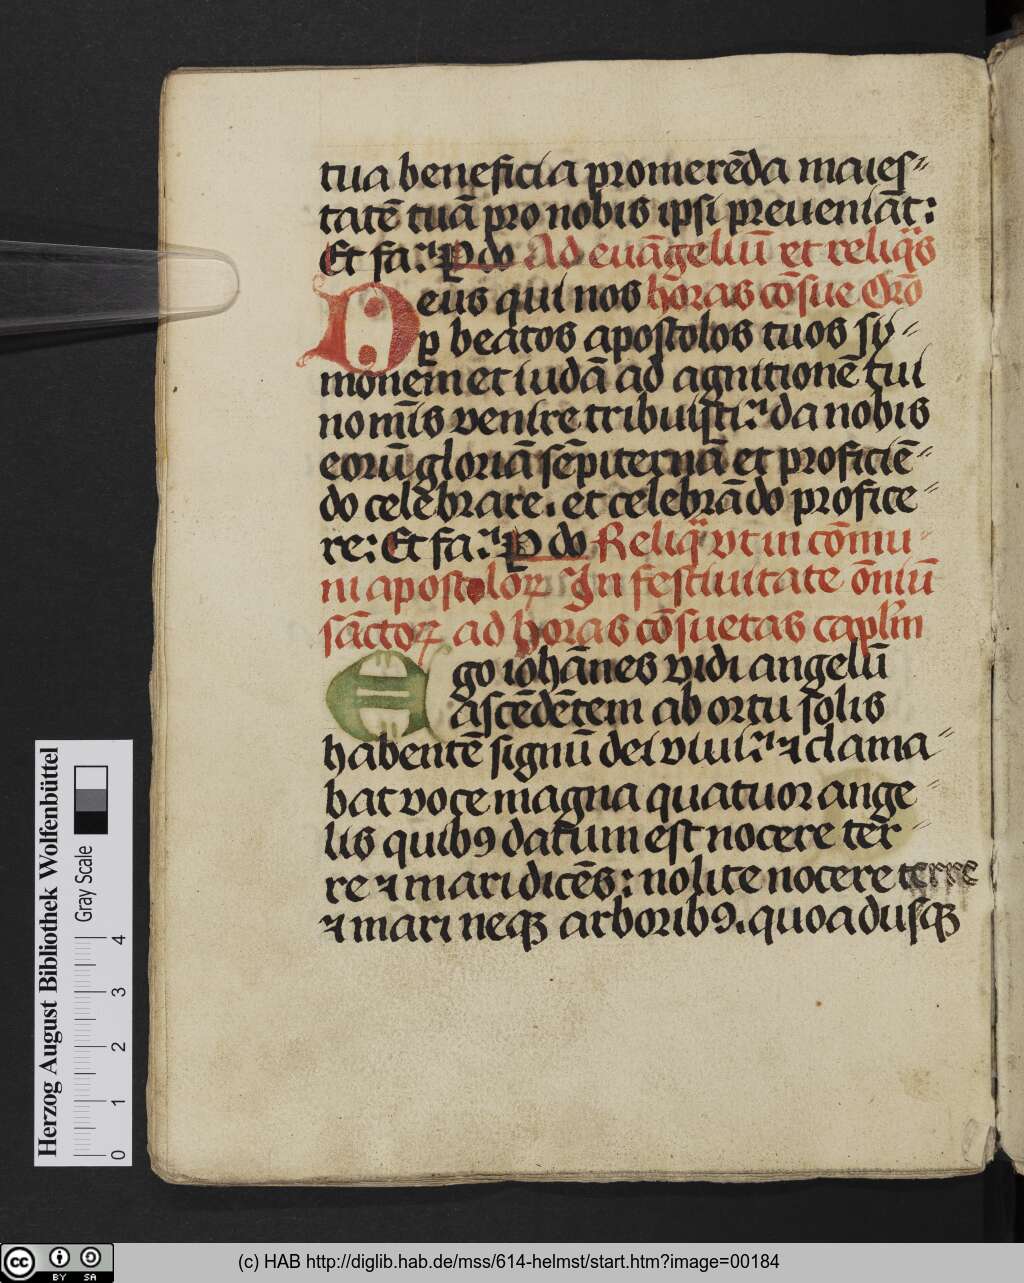 tua beneficia promerēda maies⸗
tatē tuā pro nobis ipsi preueniāt:
Et fa. P do Ad euāgeliū et reliqs
Deus qui nos horas cōsue Orō
ꝑ beatos apostolos tuos sy⸗
monem et iudā ad agnitionē tui
nomīs venire tribuisti. da nobis
eorū gloriā sēpiternā et proficiē⸗
do celebrare. et celebrādo profice⸗
re: Et fa. P do Reliq vt in cōmu⸗
ni apostoloꝝ In festiuitate ōniū
sāctoꝝ ad horas cōsuetas caplm
Ego iohānes vidi angelū
ascēdētem ab ortu solis
habentē signū dei viui. ⁊ clama⸗
bat voce magna quatuor ange⸗
lis quibꝯ datum est nocere ter⸗
re ⁊ mari dicēs: nolite nocere terre
⁊ mari neqꝫ arboribꝯ. quoadusqꝫ
Herzog August Bibliothek Wolfenbüttel
Gray Scale
0 1 2 3 4
cc BY SA
(c) HAB http://diglib.hab.de/mss/614-helmst/start.htm?image=00184